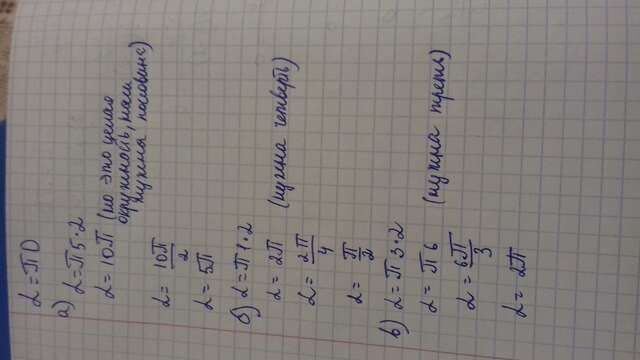 L = πD
а) L = π5·2
L = 10π (но это целая
окружность, нам
нужна половина)
L = 10π/2
L = 5π
б) L = π1·2
L = 2π (нужна четверть)
L = 2π/4
L = π/2
в) L = π3·2
L = π6 (нужна треть)
L = 6π/3
L = 2π